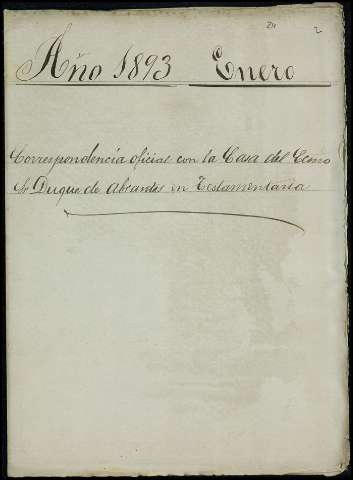 2
Año 1893 Enero
Correspondencia oficial con la Casa del Ecmo
Sr Duque de Abrantes en Testamentaria